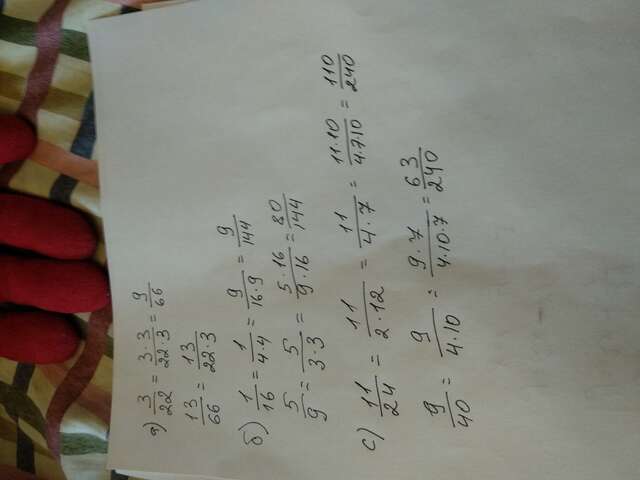 а) 3/22 = 3·3/22·3 = 9/66
13/66 = 13/22·3
б) 1/16 = 1/4·4 = 9/16·9 = 9/144
5/9 = 5/3·3 = 5·16/9·16 = 80/144
с) 11/24 = 11/2·12 = 11/4·7 = 11·10/4·7·10 = 110/240
9/40 = 9/4·10 = 9·7/4·10·7 = 63/240